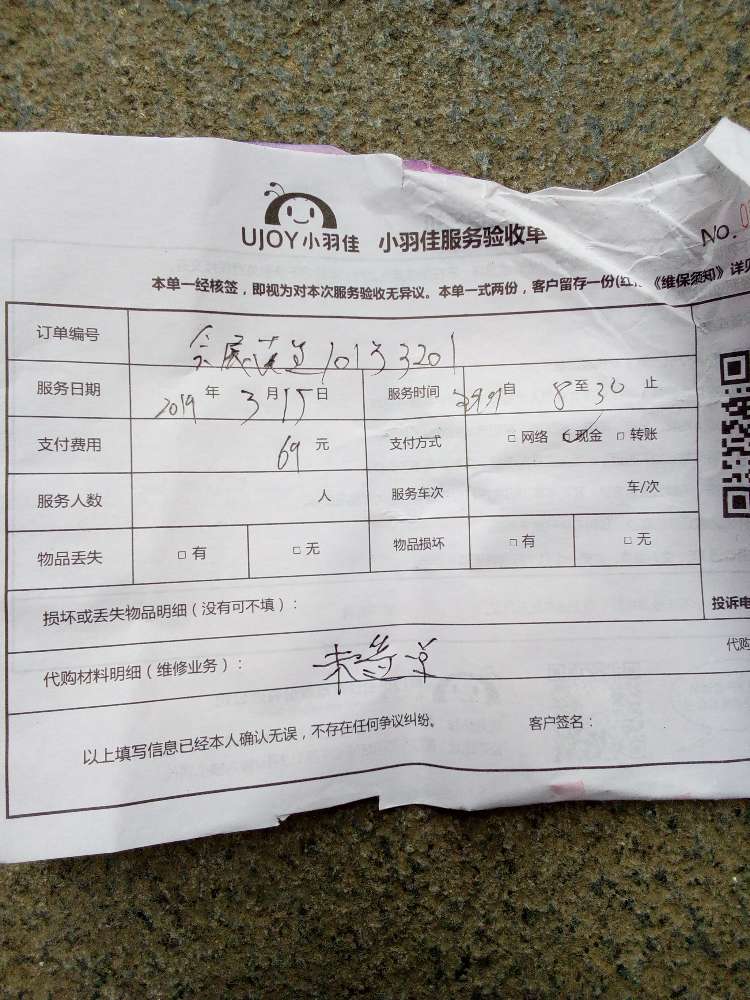 UJOY小羽佳 小羽佳服务验收单
NO.0
本单一经核签，即视为对本次服务验收无异议。本单一式两份，客户留存一份(红 《维保须知》详见
订单编号 会展 101号3201
服务日期 2019 年 3 月 15 日 服务时间 自 8 至 30 止
支付费用 69 元 支付方式 □ 网络 □ 现金 □ 转账
服务人数 人 服务车次 车/次
物品丢失 □ 有 □ 无 物品损坏 □ 有 □ 无
损坏或丢失物品明细（没有可不填）： 投诉电
代购材料明细（维修业务）： 代购
以上填写信息已经本人确认无误，不存在任何争议纠纷。 客户签名：